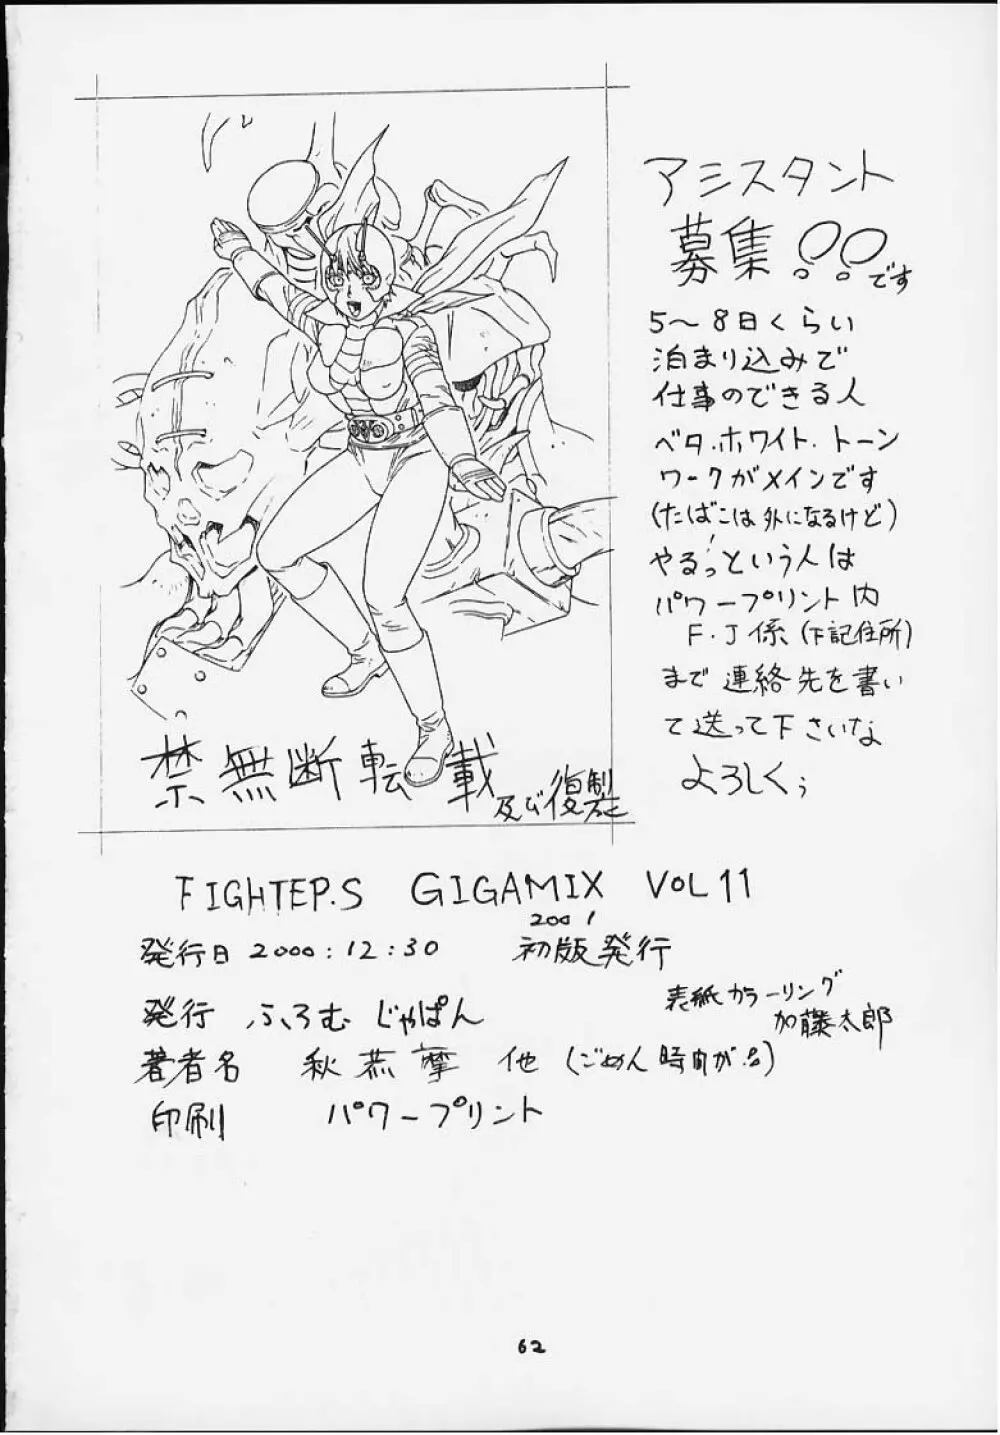 アシスタント
募集!!です
5〜8日くらい
泊まり込みで
仕事のできる人
ベタ.ホワイト.トーン
ワークがメインです
(たばこは外になるけど)
やるっ!という人は
パワープリント内
F.J係(下記住所)
まで連絡先を書い
て送って下さいな
よろしくぅ
禁無断転載
及び復製
FIGHTEP.S GIGAMIX VOL 11
発行日 2000:12:30 2001 初版発行
表紙カラーリング
加藤太郎
発行 ふろむじゃぱん
著者名 秋恭摩 他 (ごめん時間が)
印刷 パワープリント
62